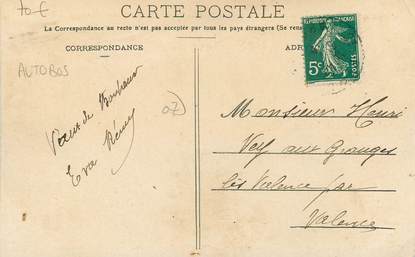 70 €
CARTE POSTALE
La Correspondance au recto n'est pas acceptée par tous les pays étrangers (Se rens
CORRESPONDANCE
ADR
AUTOBOS
07
REPUBLIQUE FRANÇAISE
5c
POSTES
Vœux de Bonheur
Eva Rémy
Monsieur Henri
aux Granges
lès Valence par
Valence